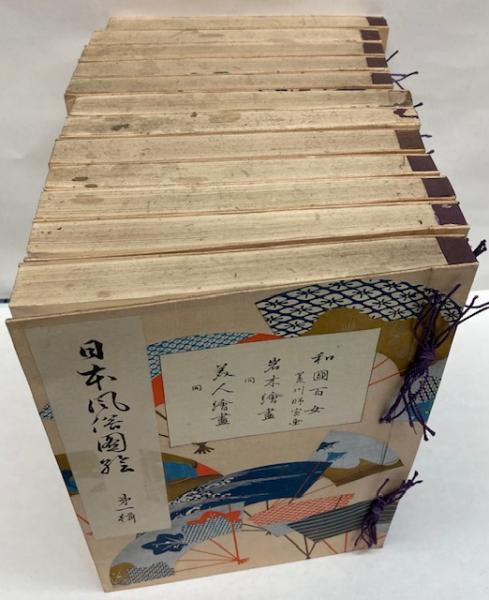 日本風俗圖繪
第一輯
和國百女
菱川師宣画
岩木繪盡
同
美人繪盡
同